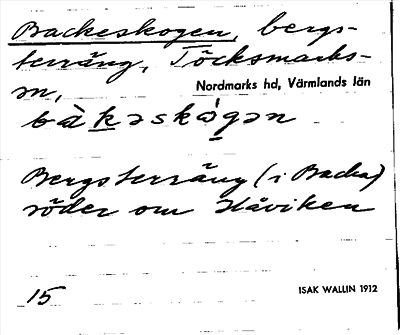 Backeskogen, bergs-
terräng, Töcksmarks-
sn,
Nordmarks hd, Värmlands län
bàkəskó̀gən
Bergsterräng (i Backa)
söder om Håviken
15
ISAK WALLIN 1912